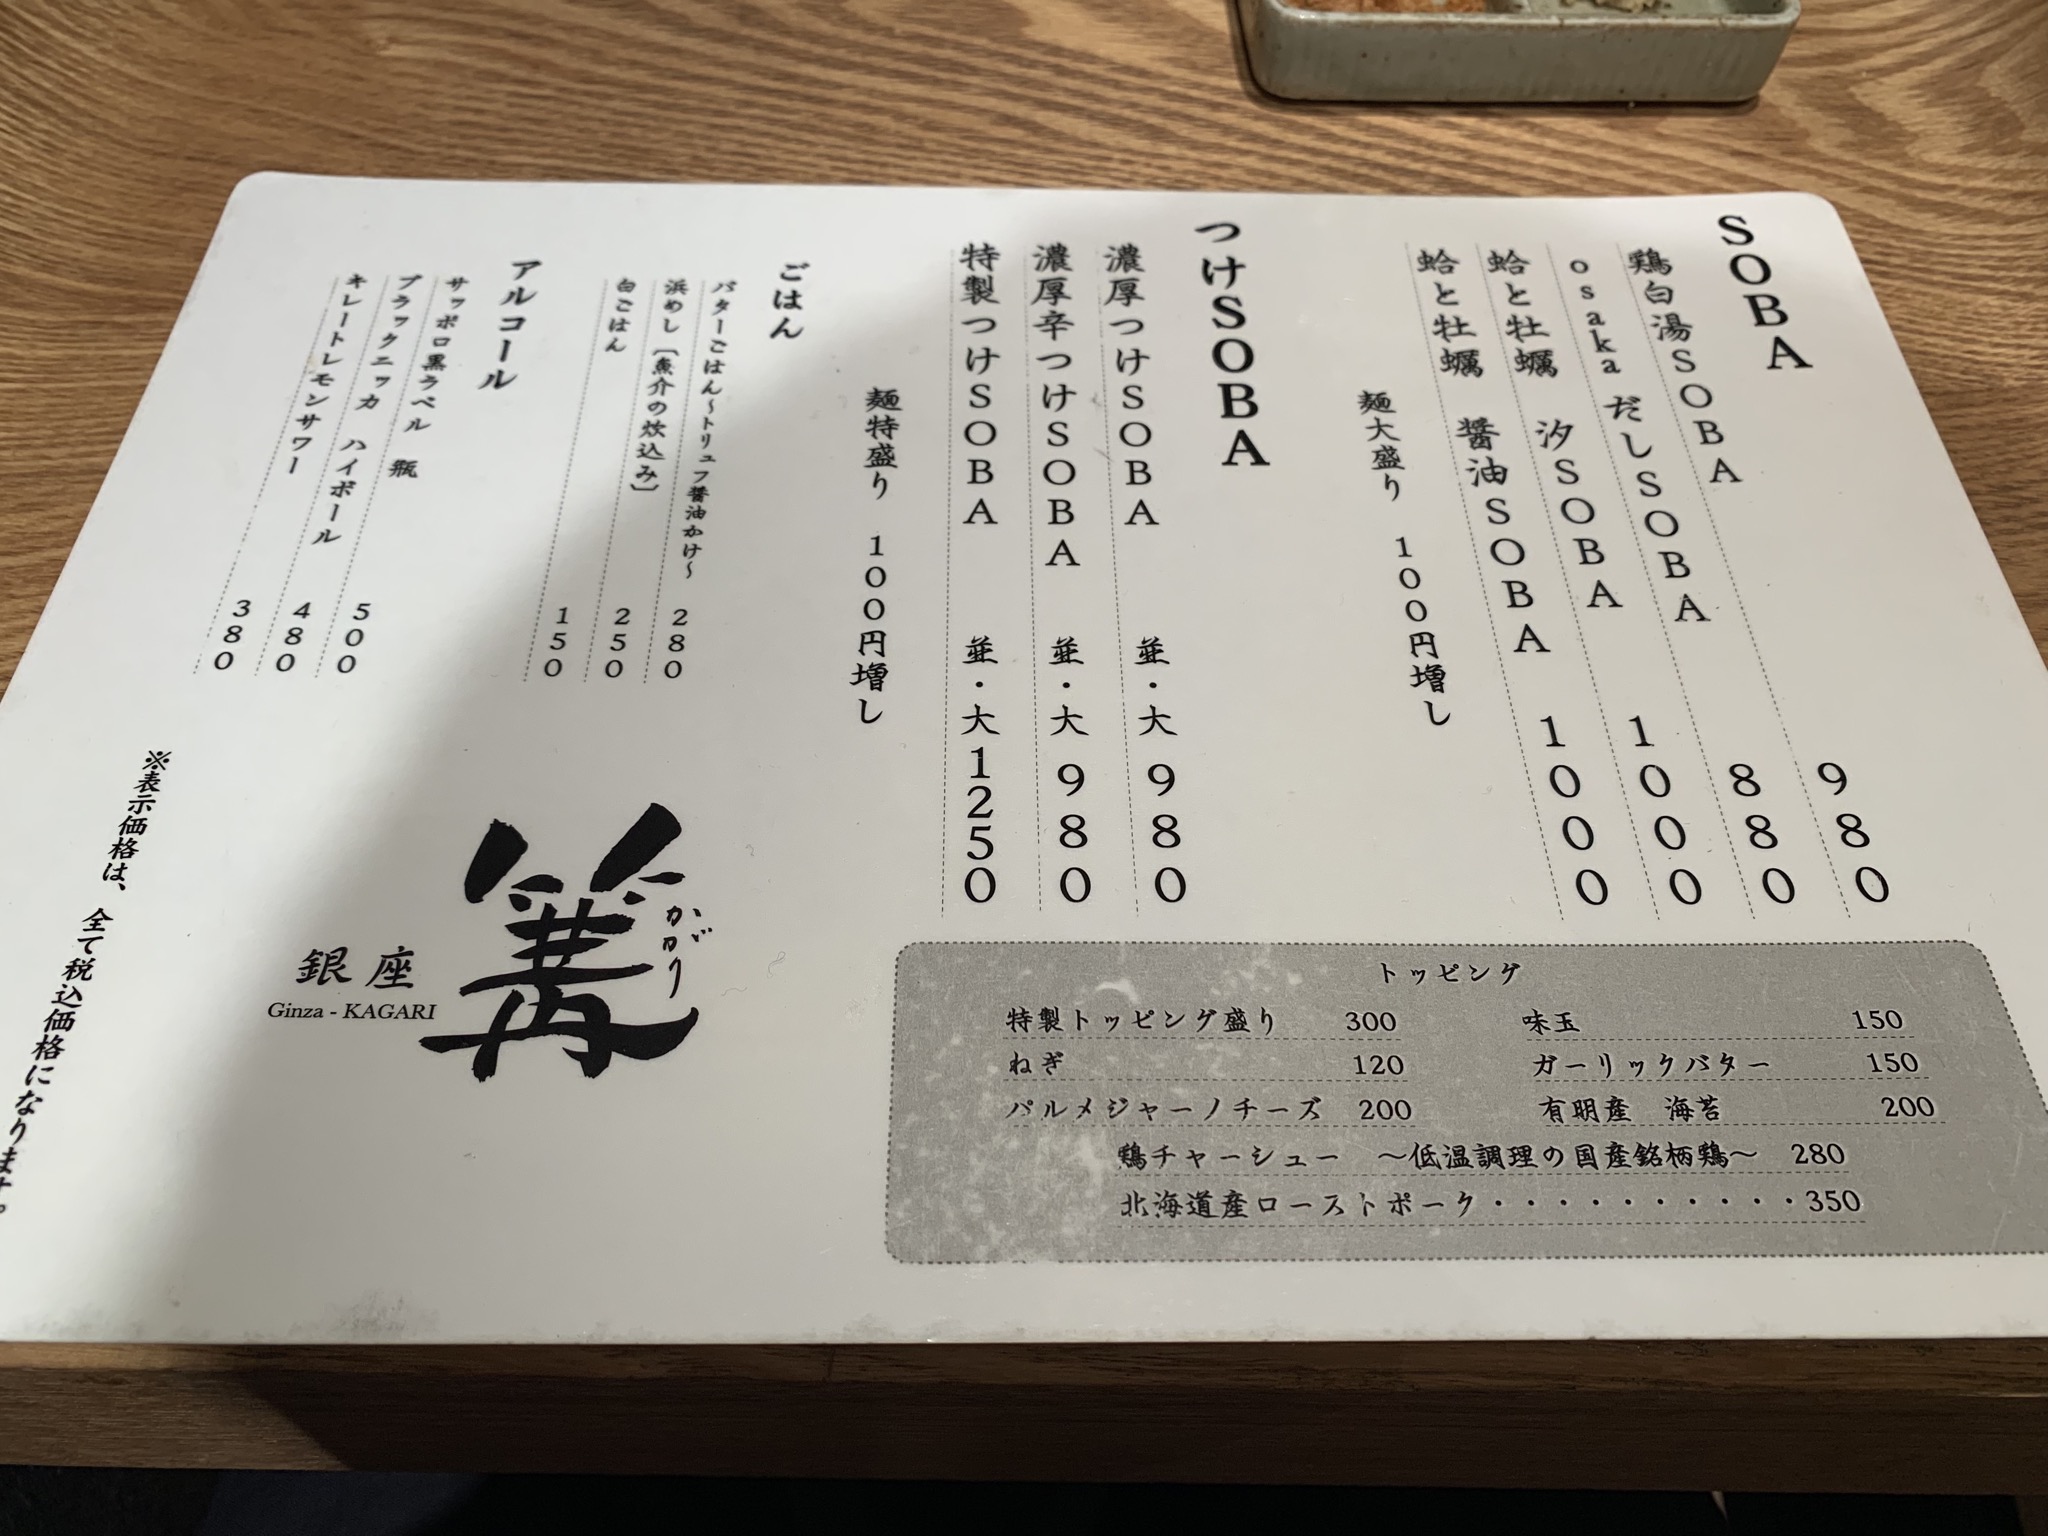 SOBA
鶏白湯SOBA 980
osakaだしSOBA 880
蛤と牡蠣 汐SOBA 1000
蛤と牡蠣 醤油SOBA 1000
麺大盛り 100円増し
つけSOBA
濃厚つけSOBA 並・大 980
濃厚辛つけSOBA 並・大 980
特製つけSOBA 並・大 1250
麺特盛り 100円増し
ごはん
バターごはん〜トリュフ醤油かけ〜 280
浜めし〔魚介の炊込み〕 250
白ごはん 150
アルコール
サッポロ黒ラベル 瓶 500
ブラックニッカ ハイボール 480
キレートレモンサワー 380
トッピング
特製トッピング盛り 300 味玉 150
ねぎ 120 ガーリックバター 150
パルメジャーノチーズ 200 有明産 海苔 200
鶏チャーシュー 〜低温調理の国産銘柄鶏〜 280
北海道産ローストポーク・・・・・・・・・・350
篝
かがり
銀座
Ginza - KAGARI
※表示価格は、全て税込価格になります。